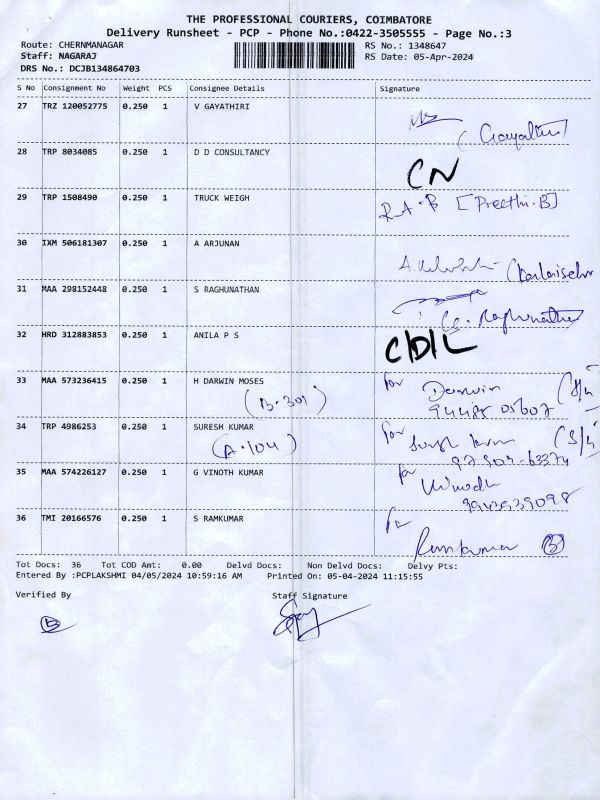 THE PROFESSIONAL COURIERS, COIMBATORE
Delivery Runsheet - PCP - Phone No.:0422-3505555 - Page No.:3
Route: CHERNMANAGAR RS No.: 1348647
Staff: NAGARAJ RS Date: 05-Apr-2024
DRS No.: DCJB134864703
S No Consignment No Weight PCS Consignee Details Signature
27 TRZ 120052775 0.250 1 V GAYATHIRI
Gayathri
28 TRP 8034085 0.250 1 D D CONSULTANCY
CN
29 TRP 1508490 0.250 1 TRUCK WEIGH R.A.B [Preethi.B]
30 IXM 506181307 0.250 1 A ARJUNAN
31 MAA 298152448 0.250 1 S RAGHUNATHAN
32 HRD 312883853 0.250 1 ANILA P S
C/D/L
33 MAA 573236415 0.250 1 H DARWIN MOSES for Darwin
(B.301)
34 TRP 4986253 0.250 1 SURESH KUMAR for
(A.104)
35 MAA 574226127 0.250 1 G VINOTH KUMAR for
9943939098
36 TMI 20166576 0.250 1 S RAMKUMAR for
Ramkumar
Tot Docs: 36 Tot COD Amt: 0.00 Delvd Docs: Non Delvd Docs: Delvy Pts:
Entered By :PCPLAKSHMI 04/05/2024 10:59:16 AM Printed On: 05-04-2024 11:15:55
Verified By Staff Signature